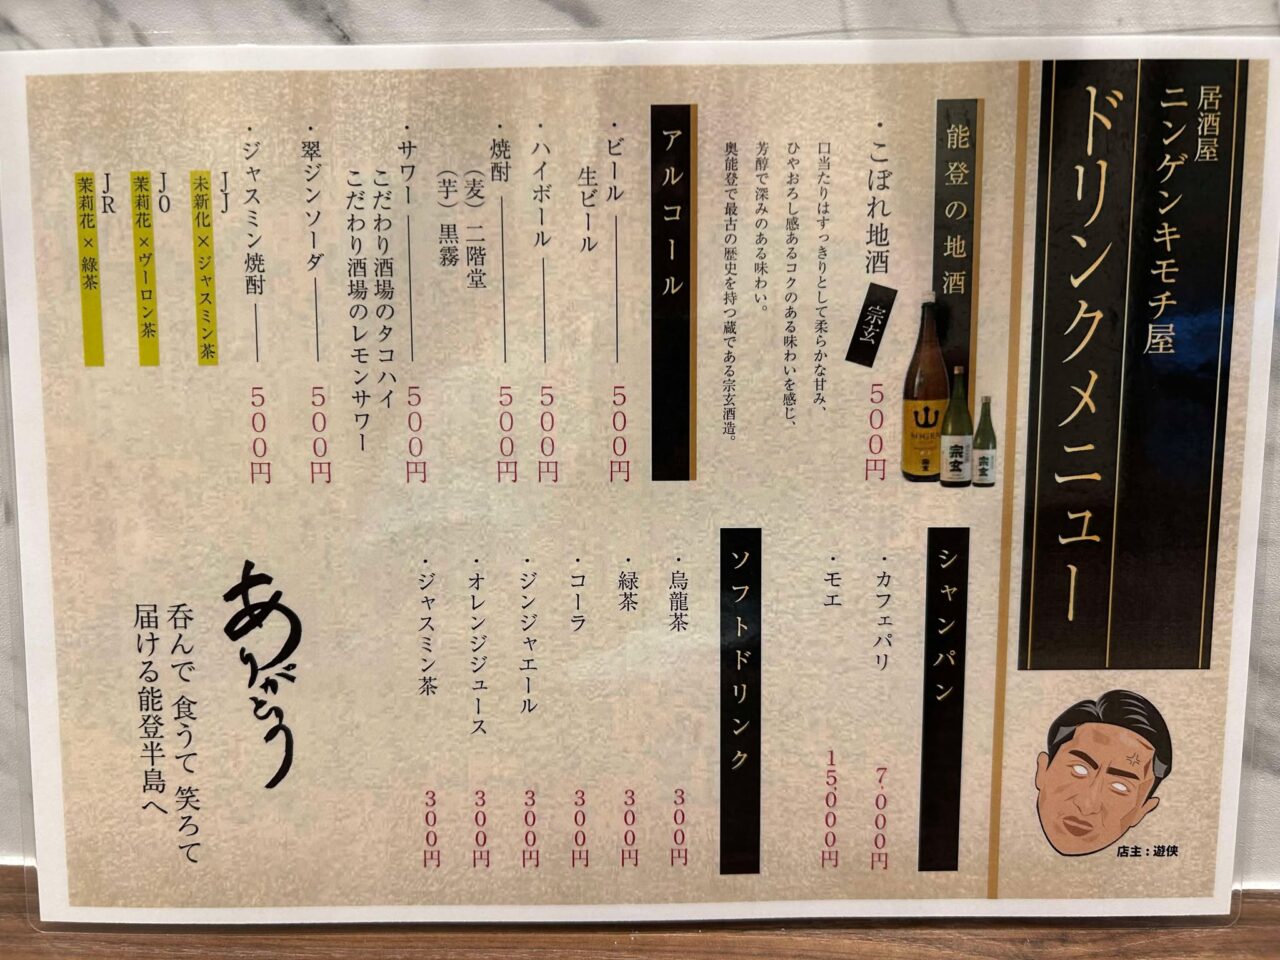 居酒屋
ニンゲンキモチ屋
ドリンクメニュー
店主：遊侠
能登の地酒
・こぼれ地酒 500円
宗玄
口当たりはすっきりとして柔らかな甘み、
ひやおろし感あるコクのある味わいを感じ、
芳醇で深みのある味わい。
奥能登で最古の歴史を持つ蔵である宗玄酒造。
宗玄
宗玄
アルコール
・ビール 500円
生ビール
・ハイボール 500円
・焼酎 500円
(麦) 二階堂
(芋) 黒霧
・サワー 500円
こだわり酒場のタコハイ
こだわり酒場のレモンサワー
・翠ジンソーダ 500円
・ジャスミン焼酎 500円
JJ
未新化×ジャスミン茶
JO
茉莉花×ヴーロン茶
JR
茉莉花×緑茶
シャンパン
・カフェパリ 7,000円
・モエ 15,000円
ソフトドリンク
・烏龍茶 300円
・緑茶 300円
・コーラ 300円
・ジンジャエール 300円
・オレンジジュース 300円
・ジャスミン茶 300円
ありがとう
呑んで 食うて 笑ろて
届ける能登半島へ